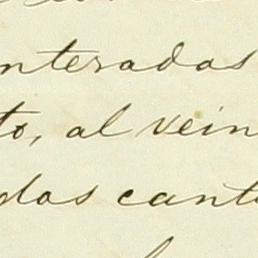 nteradas
to, al vein
das cant